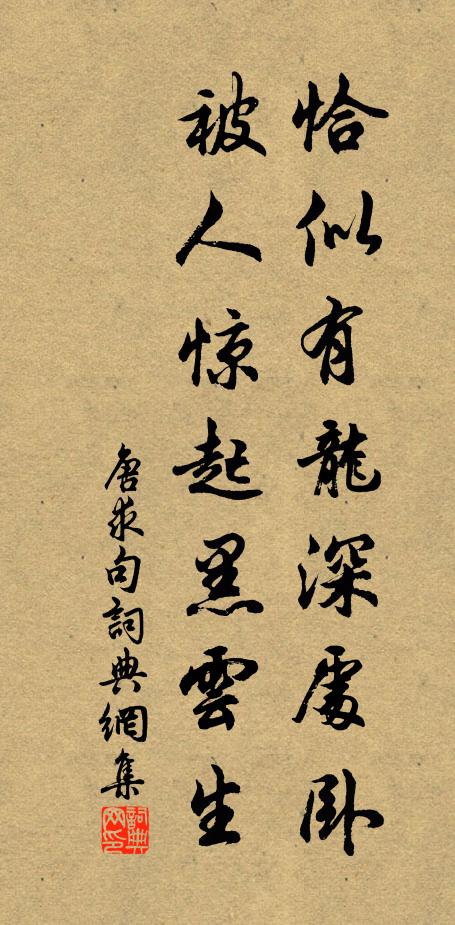 恰似有龍深處卧
被人惊起黑雲生
唐求句詞典網集
詞典网印